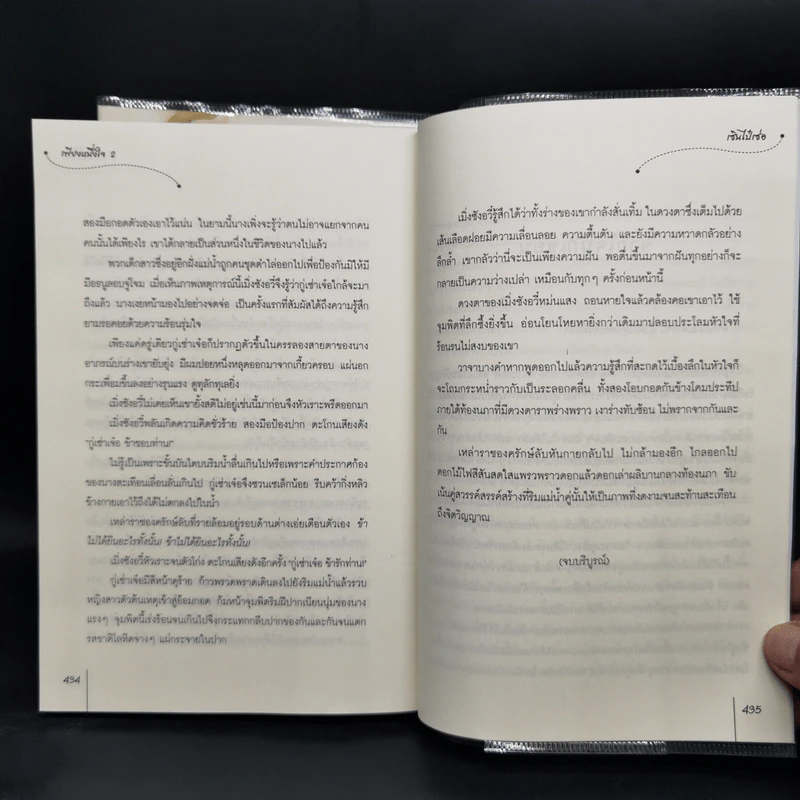 เพียงหนึ่งใจ 2
สองมือกอดตัวเองเอาไว้แน่น ในยามนี้นางเพิ่งจะรู้ว่าตนไม่อาจแยกจากคน
คนนั้นได้เพียงไร เขาได้กลายเป็นส่วนหนึ่งในชีวิตของนางไปแล้ว
พวกเด็กสาวซึ่งอยู่อีกฝั่งแม่น้ำถูกคนชุดดำไล่ออกไปเพื่อป้องกันมิให้มี
มือธนูลอบจู่โจม เมื่อเห็นภาพเหตุการณ์นี้เมิ่งซังอวี๋จึงรู้ว่ากู่เซ่าเจ๋อใกล้จะมา
ถึงแล้ว นางเงยหน้ามองไปอย่างจดจ่อ เป็นครั้งแรกที่สัมผัสได้ถึงความรู้สึก
ยามรอคอยด้วยความร้อนรุ่มใจ
เพียงแค่ครู่เดียวกู่เซ่าเจ๋อก็ปรากฏตัวขึ้นในครรลองสายตาของนาง
อาภรณ์บนร่างเขายับยุ่ง มีผมปอยหนึ่งหลุดออกมาจากเกี้ยวครอบ แผ่นอก
กระเพื่อมขึ้นลงอย่างรุนแรง ดูทุลักทุเลยิ่ง
เมิ่งซังอวี๋ไม่เคยเห็นเขายั้งสติไม่อยู่เช่นนี้มาก่อนจึงหัวเราะพรืดออกมา
เมิ่งซังอวี๋พลันเกิดความคิดชั่วร้าย สองมือป้องปาก ตะโกนเสียงดัง
"กู่เซ่าเจ๋อ ข้าชอบท่าน!"
ไม่รู้เป็นเพราะขั้นบันไดบนริมน้ำลื่นเกินไปหรือเพราะคำประกาศก้อง
ของนางสะเทือนเลื่อนลั่นเกินไป กู่เซ่าเจ๋อจึงซวนเซเล็กน้อย รีบคว้ากิ่งหลิว
ข้างกายเอาไว้ถึงได้ไม่ตกลงไปในน้ำ
เหล่าราชองครักษ์ลับที่รายล้อมอยู่รอบด้านต่างเอ่ยเตือนตัวเอง ข้า
ไม่ได้ยินอะไรทั้งนั้น! ข้าไม่ได้ยินอะไรทั้งนั้น!
เมิ่งซังอวี๋หัวเราะจนตัวโก่ง ตะโกนเสียงดังอีกครั้ง "กู่เซ่าเจ๋อ ข้ารักท่าน!"
กู่เซ่าเจ๋อมีสีหน้าดุร้าย ก้าวพรวดพราดเดินลงไปยังริมแม่น้ำแล้วรวบ
หญิงสาวตัวต้นเหตุเข้าสู่อ้อมกอด ก้มหน้าจุมพิตริมฝีปากเนียนนุ่มของนาง
แรงๆ จุมพิตนี้เร่งร้อนจนเกินไปจึงกระแทกกลีบปากของกันและกันจนแตก
รสชาติโลหิตจางๆ แผ่กระจายในปาก
434
เซินไป๋เซ่อ
เมิ่งซังอวี๋รู้สึกได้ว่าทั้งร่างของเขากำลังสั่นเทิ้ม ในดวงตาซึ่งเต็มไปด้วย
เส้นเลือดฝอยมีความเลื่อนลอย ความตื้นตัน และยังมีความหวาดกลัวอย่าง
ลึกล้ำ เขากลัวว่านี่จะเป็นเพียงความฝัน พอตื่นขึ้นมาจากฝันทุกอย่างก็จะ
กลายเป็นความว่างเปล่า เหมือนกับทุกๆ ครั้งก่อนหน้านี้
ดวงตาของเมิ่งซังอวี๋หม่นแสง ถอนหายใจแล้วคล้องคอเขาเอาไว้ ใช้
จุมพิตที่ลึกซึ้งยิ่งขึ้น อ่อนโยนโหยหายิ่งกว่าเดิมมาปลอบประโลมหัวใจที่
ร้อนรนไม่สงบของเขา
วาจาบางคำหากพูดออกไปแล้วความรู้สึกที่สะกดไว้เบื้องลึกในหัวใจก็
จะโถมกระหน่ำราวกับเป็นระลอกคลื่น ทั้งสองโอบกอดกันข้างโคมประทีป
ภายใต้ท้องนภาที่มีดวงดาราพร่างพราว เงาร่างทับซ้อน ไม่พรากจากกันและ
กัน
เหล่าราชองครักษ์ลับหันกายกลับไป ไม่กล้ามองอีก ไกลออกไป
ดอกไม้ไฟสีสันสดใสแพรวพราวดอกแล้วดอกเล่าผลิบานกลางท้องนภา ขับ
เน้นคู่สวรรค์สรรค์สร้างที่ริมแม่น้ำคู่นั้นให้เป็นภาพที่งดงามจนสะท้านสะเทือน
ถึงจิตวิญญาณ
(จบบริบูรณ์)
435